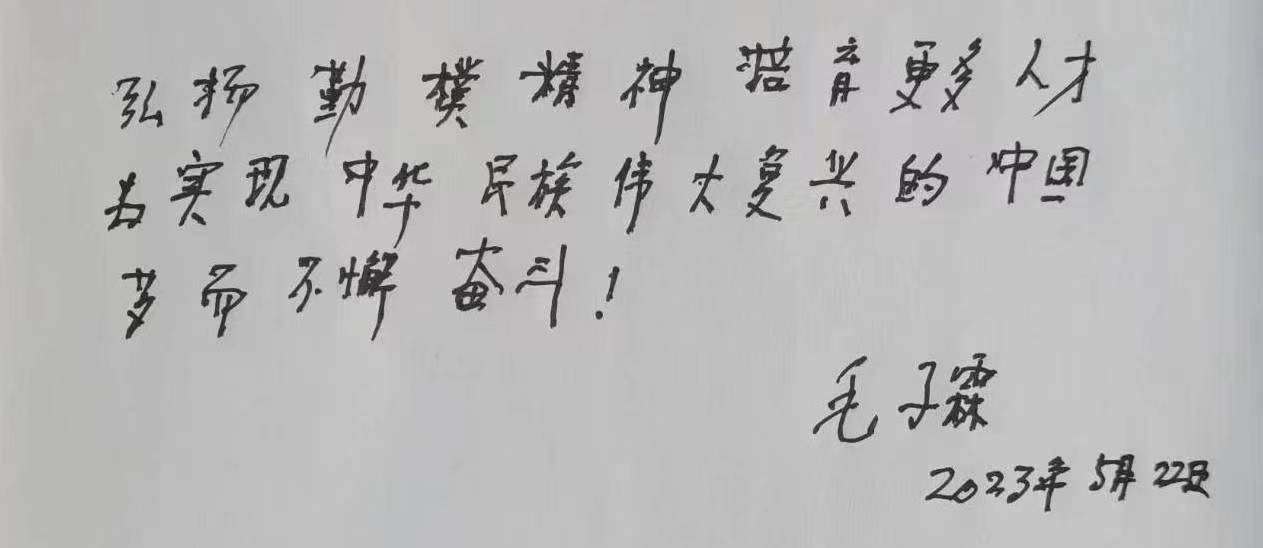 弘扬勤樸精神 培育更多人才
为实现中华民族伟大复兴的中国
梦而不懈奋斗!
毛子霖
2023年5月22日